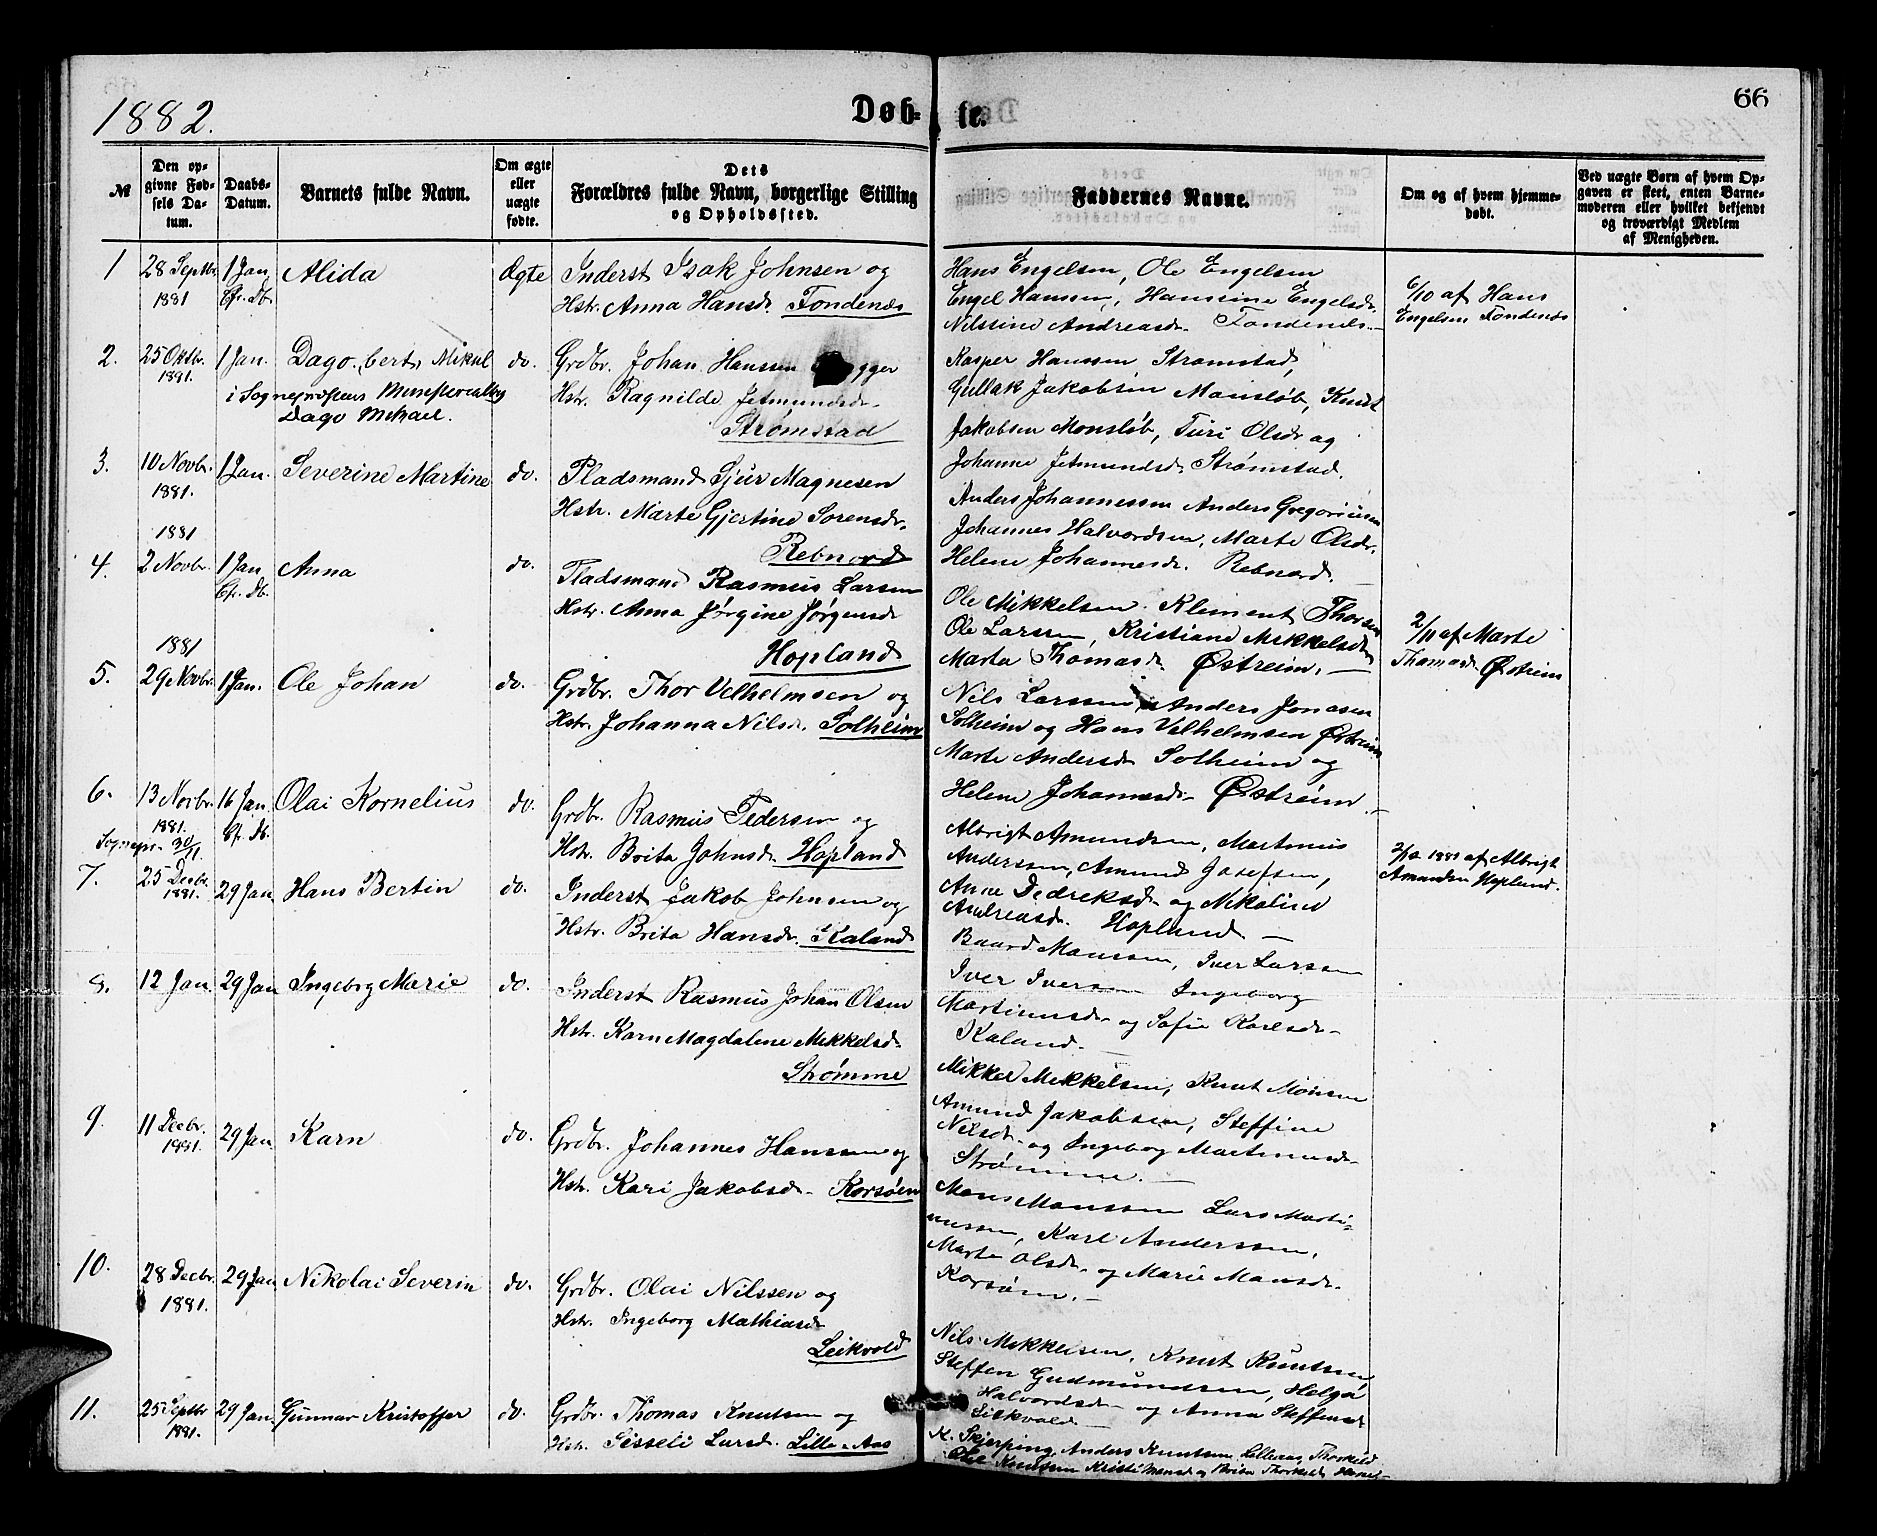 1882.
Døb-
te.
66
№
Den op-
givne Fød-
sels Da-
tum.
Daabs-
Datum.
Barnets fulde Navn.
Om ægte
eller
uægte
fødte.
Dets
Forældres fulde Navn, borgerlige Stilling
og Opholdssted.
Faddernes Navne.
Om og af hvem hjemme-
døbt.
Ved uægte Børn af hvem Op-
gaven er skeet, enten Barne-
moderen eller hvilket bekjendt
og troværdigt Medlem
af Menigheden.
1 28 Septbr 1 Jan Alida Ægte Inderst Isak Johnsen og
1881 Cf. Db. Hstr. Anna Hansdr. Tondenæs
Hans Engelsen, Ole Engelsen
Engel Hanssen, Hanssine Engelsdr.
Nilssine Andreasdr. Tondenes.
6/10 af Hans
Engelsen Tondenæs
2. 25 Oktbr. 1 Jan. Dago bert Mikal do. Grdbr. Johan Hanssen
1881.
i Sogneprestens Ministerialbog
Dago Mikael.
Hstr. Ragnilde Jetmundsdr.
Strømstad
Kasper Hanssen Strømstad,
Gullak Jakobsen Monsløb, Knut
Jakobsen Monsløb, Turi Olsdr og
Johanne Jetmundsdr. Strømstad.
3. 10 Novbr. 1 Jan. Severine Martine do. Pladsmand Sjur Magnesen
1881.
Hstr. Marte Gjertine Sorensdr.
Rebnord
Anders Johannessen Anders Gregoriusen
Johannes Halvordsen, Marte Olsdr.
Helene Johannesdr. Rebnord.
1881
4. 2 Novbr. 1 Jan Anna do. Pladsmand Rasmus Larsen
Cf. Db.
Hstr. Anna Jørgine Jørgensdr
Hopland
Ole Mikkelsen. Klement Thorsen
Ole Larssen, Kristiane Mikkelsdr
Marta Thomasdr Østreim.
2/11 af Marte
Thomasdr Østreim
1881
5. 29 Novbr. 1 Jan. Ole Johan do. Grdbr. Thor Velhelmsen og
Hstr. Johanna Nilsdr. Solheim
Nils Larssen, Anders Jonasen
Solheim og Hans Velhelmsen Østreim
Marte Andersdr Solheim og
Helene Johannesdr. Østreim
6. 13 Novbr. 16 Jan Olai Kornelius do. Grdbr. Rasmus Pedersen og
1881. Cf. Db.
Sognepr. 30/11.
Hstr. Brita Johnsdr. Hopland
Albrigt Amundsen, Martinus
Anderssen, Amund Josefsen,
Anne Dedreksdr og Mikaline
Andreasdr. Hopland
1881 af Albrigt
Amundsen Hopland.
7. 25 Decbr. 29 Jan Hans Bertin do. Inderst Jakob Johnsen og
1881.
Hstr. Brita Hansdr. Kaland
Baard Monssen, Iver Larssen
Iver Iversen Ingeborg
Martinusdr og Sofie Karlsdr.
Kaland.
8. 12 Jan. 29 Jan Ingeborg Marie do. Inderst Rasmus Johan Olsen
Hstr. Karn Magdalene Mikkelsdr.
Strømme
Mikkel Mikkelsen, Knut Monsen
Amund Jakobsen, Steffine
Nilsdr. og Ingeborg Martinusdr.
Strømme.
9. 11 Decbr. 29 Jan. Karn do. Grdbr. Johannes Hanssen og
1881.
Hstr. Kari Jakobsdr. Korsøen
Mons Monssen Lars Marti-
nussen, Karl Anderssen,
Marta Olsdr. og Marie Monsdr.
Korsøen.
10. 28 Decbr. 29 Jan. Nikolai Severin do. Grdbr. Olai Nilssen og
1881.
Hstr. Ingeborg Mathiasdr
Leikvold
Nils Mikkelsen, Knut Knutssen
Steffen Gudmundsen, Helga
Halvordsdr og Anna Steffensdr
Leikvold
11. 25 Septbr 29 Jan. Gunnar Kristoffer do. Grdbr. Thomas Knutsen og
1881.
Hstr. Sisseli Larsdr. Lille-Aas
K. Skjerping, Anders Knutsen Lilleaas, Thorkild
Ole Knutsen Kristi Monsdr og Brita Thorkildsdr